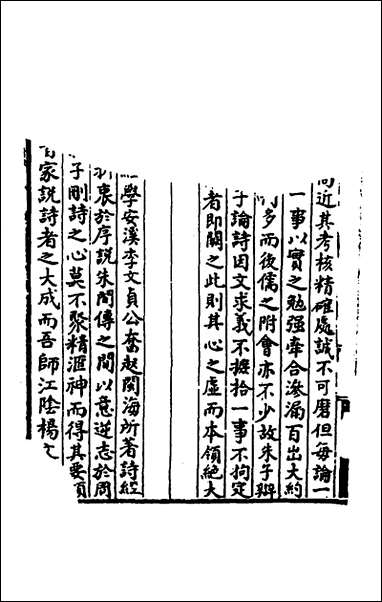 尚近其考核精確處誠不可磨但每論一
一事以實之勉强牽合滲漏百出大約
多而後儒之附會亦不少故朱子辨
子論詩因文求義不摭拾一事不拘定
者即闕之此則其心之虛而本領絕大
學安溪李文貞公奮起閩海所著詩經
衷於序說朱問傳之間以意逆志於周
子刪詩之心莫不聚精滙神而得其要領
家說詩者之大成而吾師江陰楊文